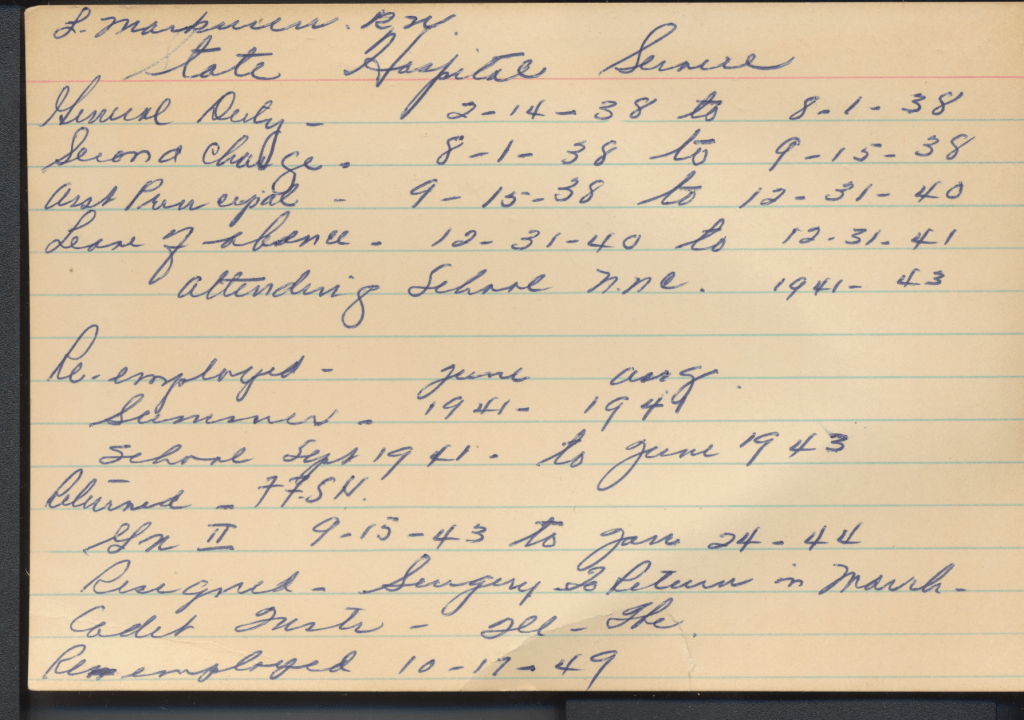 L. Markusen. R.N.
State Hospital Service
General Duty - 2-14-38 to 8-1-38
Second Charge. 8-1-38 to 9-15-38
Asst Principal - 9-15-38 to 12-31-40
Leave of absence. 12-31-40 to 12-31-41
attending School N.N.C. 1941-43
Re-employed - June Aug.
Summer - 1941- 1941
School Sept 1941. to June 1943
Returned - F.F.S.H.
Gr II 9-15-43 to Jan 24-44
Resigned - Surgery To Return in March-
Cadet Instr - Ill - The.
Re-employed 10-17-49